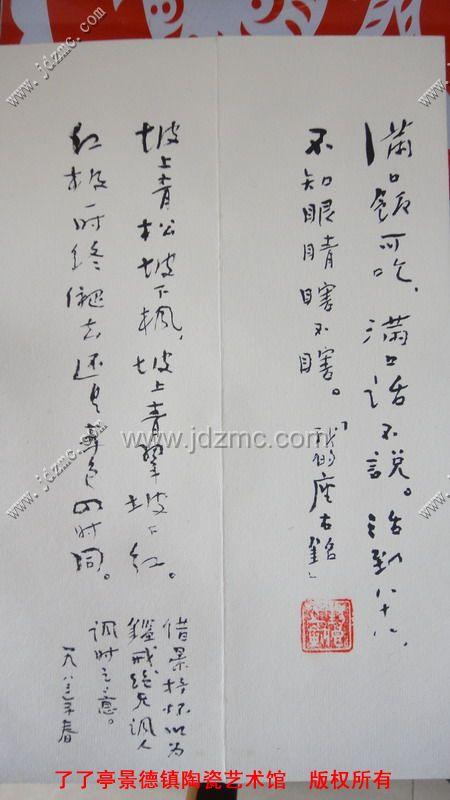 满口饭可吃，满口话不说。活到八十八，
不知眼睛瞎不瞎。「我的座右铭」
坡上青松坡下枫，坡上青翠坡下红。
红极一时终
去还是
色四时同。
借景抒怀以为
鉴戒绝无讽人
讽时之意。
一九八三年春
www.jdzmc.com
www.jdzmc.com
www.jdzmc.com
www.jdzmc.com
www.jdzmc.com
了了亭景德镇陶瓷艺术馆 版权所有